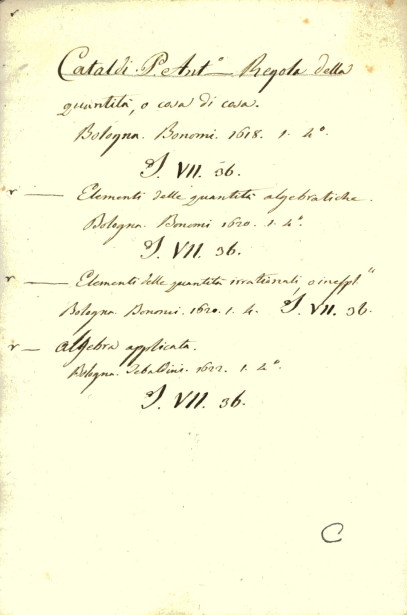 Cataldi. P. Ant.º — Regola della
quantità, o cosa di cosa.
Bologna. Bonomi. 1618. 1. 4º.
S. VII. 36.
r — Elementi delle quantità algebratiche.
Bologna. Bonomi 1620. 1. 4º.
S. VII. 36.
r — Elementi delle quantità irrationali, o inespl.
Bologna. Bonomi. 1620. 1. 4. S. VII. 36.
r — Algebra applicata.
Bologna. Sebaldini. 1622. 1. 4º.
S. VII. 36.
C